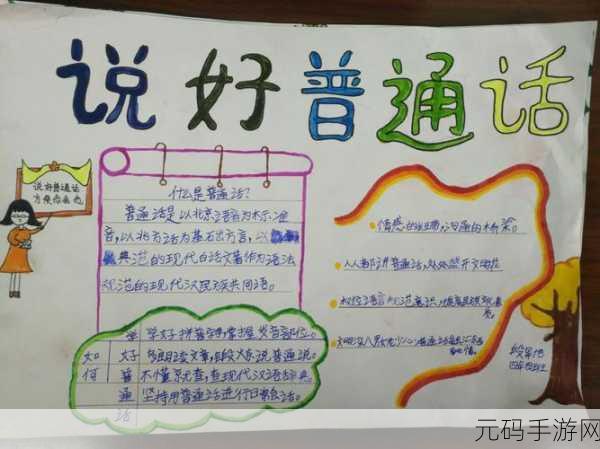 说好普通话
说好普通话
方便你我他
什么是普通话?
普通话是以北京语音为标准
音,以北方话为基石出方言,以
典范的现代白话文著作为语法
规范的现代汉民族共同语。
如何学好普通话
学好拼音,掌握发音部位。
多朗读文章,大家说普通说。
不懂就查,查现代汉语辞典。
坚持用普通话进行日常会话。
情感的纽带,沟通的桥梁。
人人都讲普通话,处处盛开文明花
元码手游网